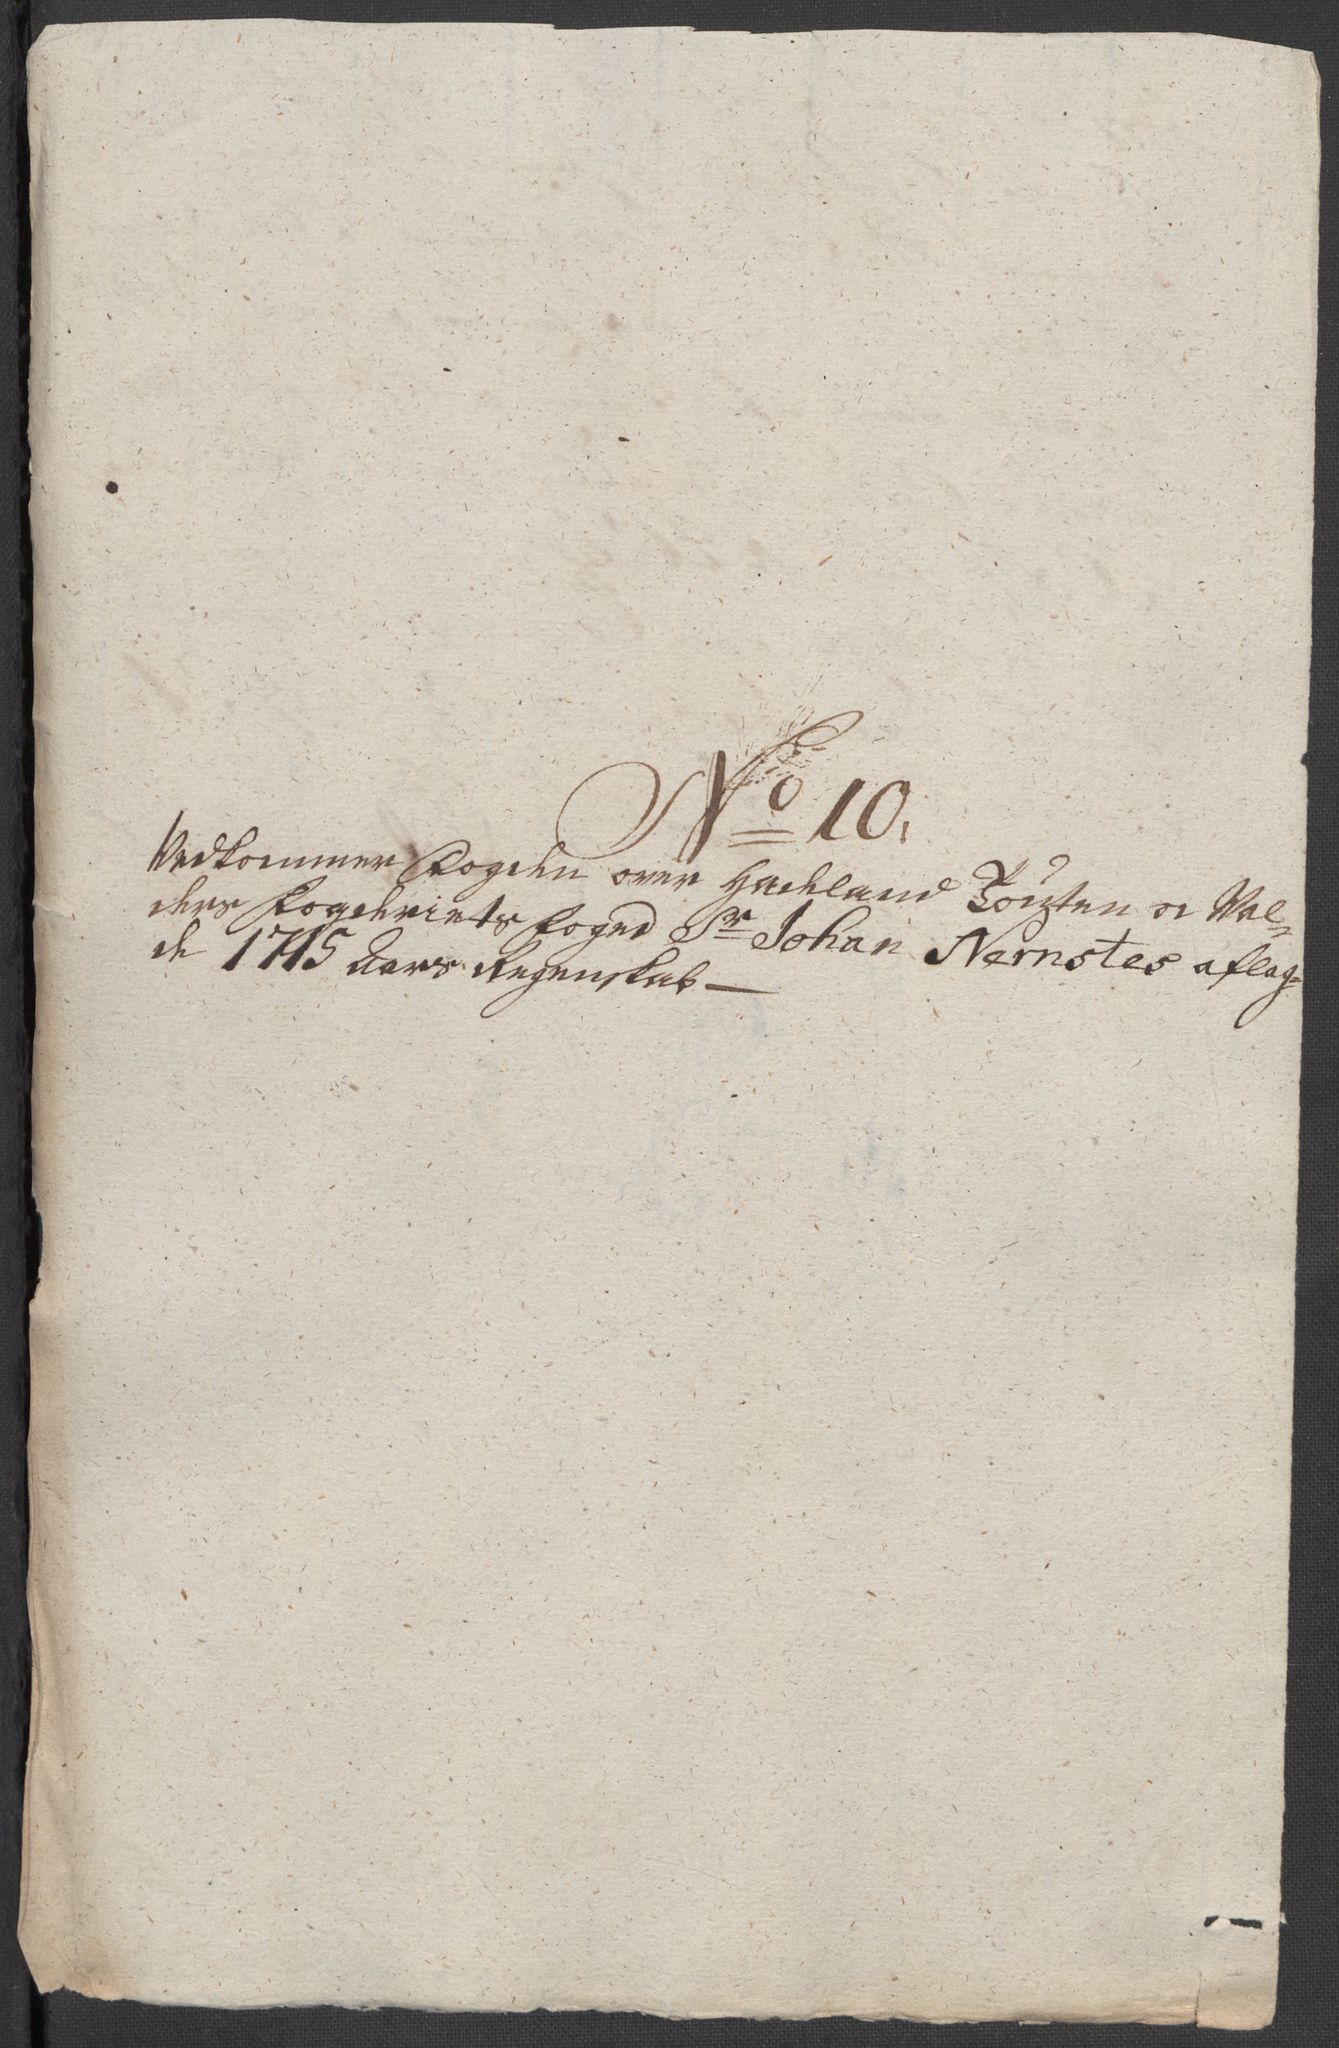 No 10.
Vedkommer Fogden over Hadeland Toten oc Val-
ders Fogderiets Foged Sr Johan Nernstes aflag-
de 1715 Aars Regenskab —